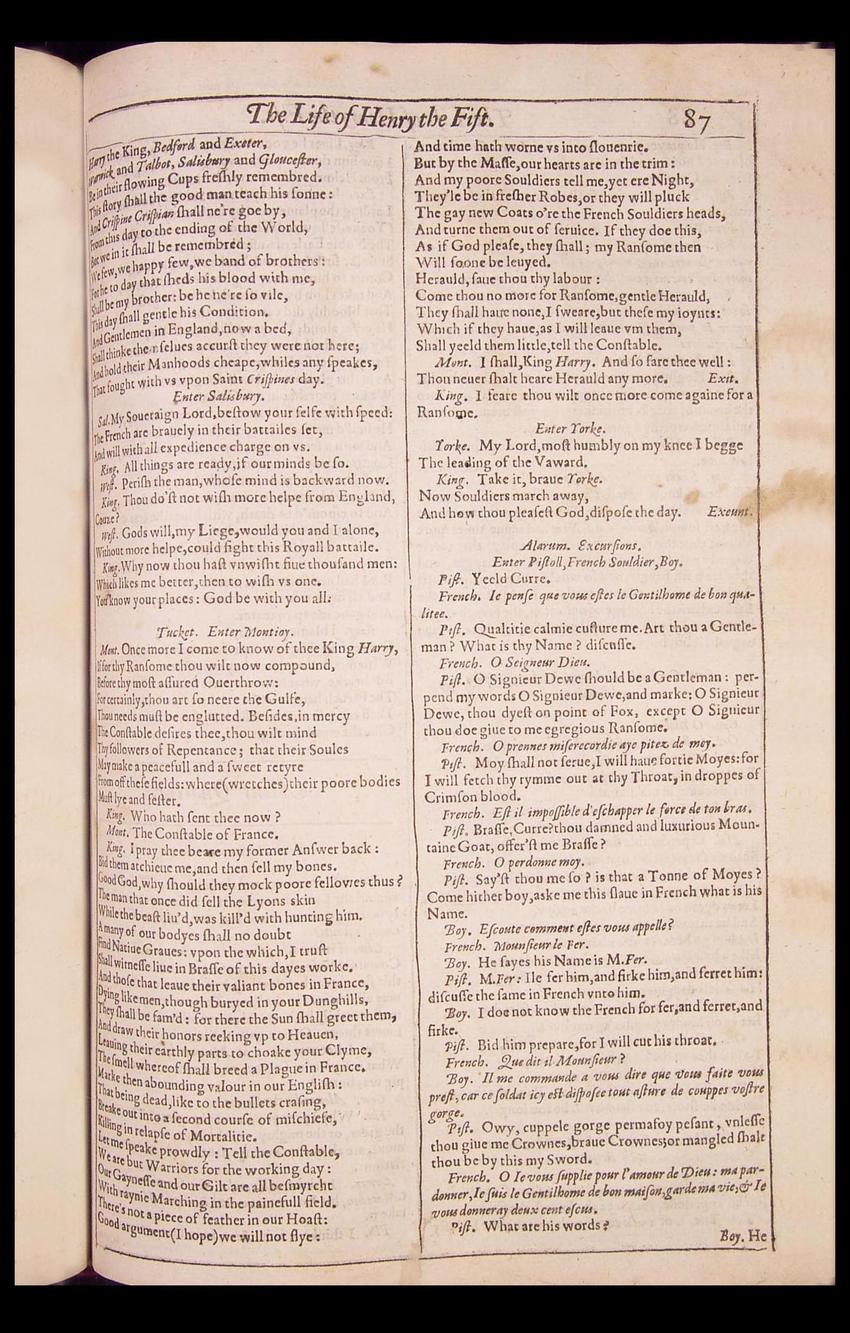 The Life of Henry the Fift.
87
Harry the King, Bedford and Exeter,
Warwick and Talbot, Salisbury and Gloucester,
Be in their flowing Cups freſhly remembred.
This ſtory ſhall the good man teach his ſonne:
And Criſpine Criſpian ſhall ne're goe by,
From this day to the ending of the World,
But we in it ſhall be remembred;
We few, we happy few, we band of brothers:
For he to day that ſheds his blood with me,
Shall be my brother: be he ne're ſo vile,
This day ſhall gentle his Condition.
And Gentlemen in England, now a bed,
Shall thinke themſelues accurſt they were not here;
And hold their Manhoods cheape, whiles any ſpeakes,
That fought with vs vpon Saint Criſpines day.
Enter Salisbury.
Sal. My Soueraign Lord, beſtow your ſelfe with ſpeed:
The French are brauely in their battailes ſet,
And will with all expedience charge on vs.
King. All things are ready, if our minds be ſo.
Weſt. Periſh the man, whoſe mind is backward now.
King. Thou do'ſt not wiſh more helpe from England,
Couze?
Weſt. Gods will, my Liege, would you and I alone,
Without more helpe, could fight this Royall battaile.
King. Why now thou haſt vnwiſht fiue thouſand men:
Which likes me better, then to wiſh vs one.
You know your places: God be with you all.
Tucket. Enter Montioy.
Mont. Once more I come to know of thee King Harry,
If for thy Ranſome thou wilt now compound,
Before thy moſt aſſured Ouerthrow:
For certainly, thou art ſo neere the Gulfe,
Thou needs muſt be englutted. Beſides, in mercy
The Conſtable deſires thee, thou wilt mind
Thy followers of Repentance; that their Soules
May make a peacefull and a ſweet retyre
From off theſe fields: where (wretches) their poore bodies
Muſt lye and feſter.
King. Who hath ſent thee now?
Mont. The Conſtable of France.
King. I pray thee beare my former Anſwer back:
Bid them atchieue me, and then ſell my bones.
Good God, why ſhould they mock poore fellowes thus?
The man that once did ſell the Lyons skin
While the beaſt liu'd, was kill'd with hunting him.
A many of our bodyes ſhall no doubt
Find Natiue Graues: vpon the which, I truſt
Shall witneſſe liue in Braſſe of this dayes worke.
And thoſe that leaue their valiant bones in France,
Dying like men, though buryed in your Dunghills,
They ſhall be fam'd: for there the Sun ſhall greet them,
And draw their honors reeking vp to Heauen,
Leauing their earthly parts to choake your Clyme,
The ſmell whereof ſhall breed a Plague in France.
Marke then abounding valour in our Engliſh:
That being dead, like to the bullets craſing,
Breake out into a ſecond courſe of miſchiefe,
Killing in relapſe of Mortalitie.
Let me ſpeake prowdly: Tell the Conſtable,
We are but Warriors for the working day:
Our Gayneſſe and our Gilt are all beſmyrcht
With raynie Marching in the painefull field.
There's not a piece of feather in our Hoaſt:
Good argument (I hope) we will not flye:
And time hath worne vs into ſlouenrie.
But by the Maſſe, our hearts are in the trim:
And my poore Souldiers tell me, yet ere Night,
They'le be in freſher Robes, or they will pluck
The gay new Coats o're the French Souldiers heads,
And turne them out of ſeruice. If they doe this,
As if God pleaſe, they ſhall; my Ranſome then
Will ſoone be leuyed.
Herauld, ſaue thou thy labour:
Come thou no more for Ranſome, gentle Herauld,
They ſhall haue none, I ſweare, but theſe my ioynts:
Which if they haue, as I will leaue vm them,
Shall yeeld them little, tell the Conſtable.
Mont. I ſhall, King Harry. And ſo fare thee well:
Thou neuer ſhalt heare Herauld any more. Exit.
King. I feare thou wilt once more come againe for a
Ranſome.
Enter Yorke.
Yorke. My Lord, moſt humbly on my knee I begge
The leading of the Vaward.
King. Take it, braue Yorke.
Now Souldiers march away,
And how thou pleaſeſt God, diſpoſe the day. Exeunt.
Alarum. Excurſions.
Enter Piſtoll, French Souldier, Boy.
Piſt. Yeeld Curre.
French. Ie penſe que vous eſtes le Gentilhome de bon qua-
litee.
Piſt. Qualtitie calmie cuſture me. Art thou a Gentle-
man? What is thy Name? diſcuſſe.
French. O Seigneur Dieu.
Piſt. O Signieur Dewe ſhould be a Gentleman: per-
pend my words O Signieur Dewe, and marke: O Signieur
Dewe, thou dyeſt on point of Fox, except O Signieur
thou doe giue to me egregious Ranſome.
French. O prennes miſerecordie aye pitez de moy.
Piſt. Moy ſhall not ſerue, I will haue fortie Moyes: for
I will fetch thy rymme out at thy Throat, in droppes of
Crimſon blood.
French. Eſt il impoſſible d'eſchapper le force de ton bras.
Piſt. Braſſe, Curre? thou damned and luxurious Moun-
taine Goat, offer'ſt me Braſſe?
French. O perdonne moy.
Piſt. Say'ſt thou me ſo? is that a Tonne of Moyes?
Come hither boy, aske me this ſlaue in French what is his
Name.
Boy. Eſcoute comment eſtes vous appelle?
French. Mounſieur le Fer.
Boy. He ſayes his Name is M. Fer.
Piſt. M. Fer: Ile fer him, and firke him, and ferret him:
diſcuſſe the ſame in French vnto him.
Boy. I doe not know the French for fer, and ferret, and
firke.
Piſt. Bid him prepare, for I will cut his throat.
French. Que dit il Mounſieur?
Boy. Il me commande a vous dire que vous faite vous
preſt, car ce ſoldat icy eſt diſpoſee tout aſture de couppes voſtre
gorge.
Piſt. Owy, cuppele gorge permafoy peſant, vnleſſe
thou giue me Crownes, braue Crownes; or mangled ſhalt
thou be by this my Sword.
French. O Ie vous ſupplie pour l'amour de Dieu: ma par-
donner, Ie ſuis le Gentilhome de bon maiſon, garde ma vie, & Ie
vous donneray deux cent eſcus.
Piſt. What are his words?
Boy. He